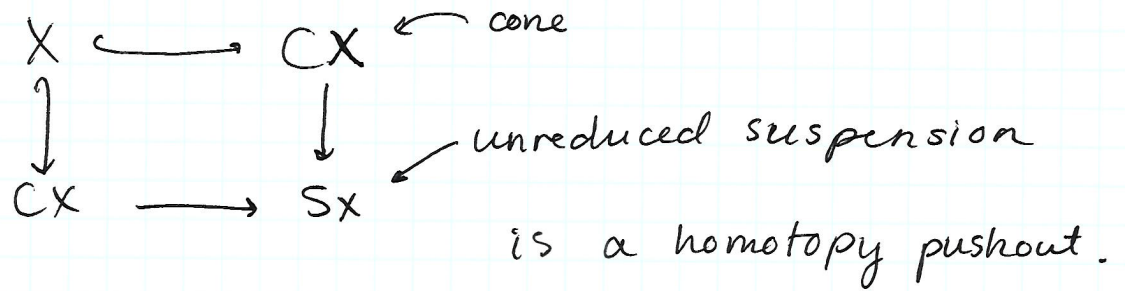 X CX cone
unreduced suspension
CX SX
is a homotopy pushout.